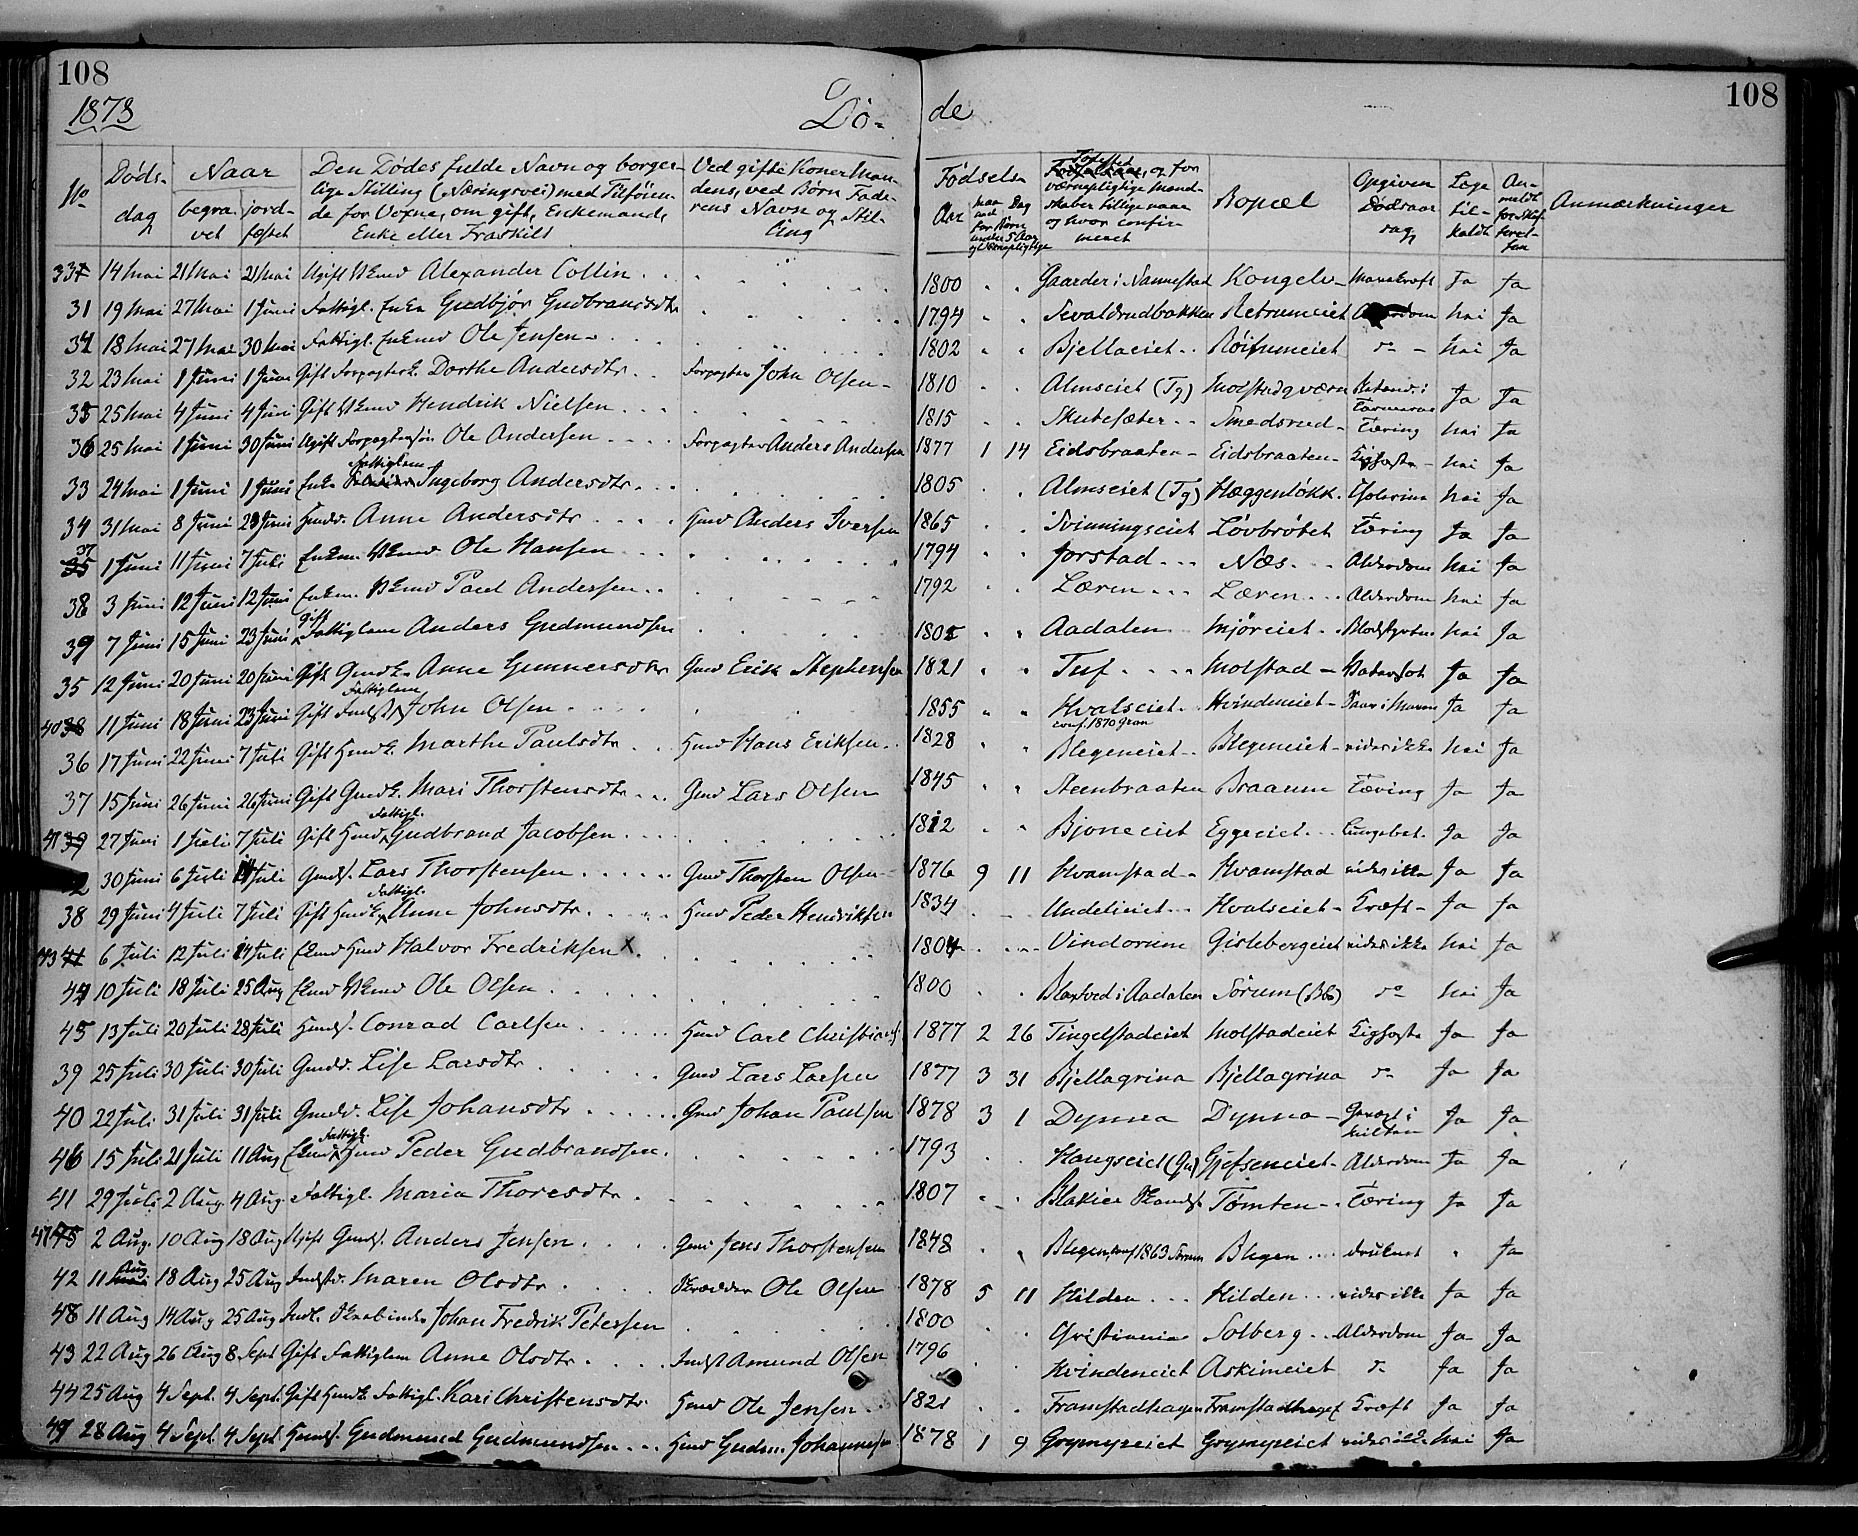 108
108
1878
Dø-
de
No
Døds-dag
Naar
begravet
jordfæstet
Den Dødes fulde Navn og borgerlige Stilling (Næringsvei) med Tilføiende for Voxne, om gift, Enkemand, Enke eller Fraskilt
Ved gifte Koner Mandens, ved Børn Faderens Navn og Stilling
Fødsels
Aar
Fødested, og for værnepligtige Mandskaber tillige naar og hvor confirmeret
Bopæl
Opgiven Dødsaarsag
Læge tilkaldt
Anmeldt for Skifteretten
Anmærkninger
14 Mai 21 Mai 21 Mai Ugift Alexander Collin 1800 Gaarder i Nannestad Mavekræft Ja Ja
31 19 Mai 27 Mai 1 Juni Fattigl. Enke Gudbjør Gudbrandsdtr 1794 Sevaldrudbakken nei Ja
18 Mai 27 Mai 30 Mai Fattigl. Enkmd Ole Jensen 1802 Bjellaeiet Røisumeiet do nei Ja
32 23 Mai 1 Juni 1 Juni Gift Forpagterk. Dorthe Andersdtr Forpagter John Olsen 1810 Almseiet (Tg) Molstadqværn Ja Ja
25 Mai 4 Juni 4 Juni Gift Hendrik Nielsen 1815 Skutesæter Smedsrud Tæring nei Ja
36 25 Mai 1 Juni 30 Juni Ugift Forpagtersøn Ole Andersen Forpagter Anders Andersen 1877 1 14 Eidsbraaten Eidsbraaten Kighoste nei Ja
33 24 Mai 1 Juni 1 Juni Enke Fattiglem Ingeborg Andersdtr 1805 Almseiet (Tg) Hæggenløkk. Cholerina nei Ja
34 31 Mai 8 Juni Husmd. Anne Andersdtr Husmd Anders Iversen 1865 Svinningseiet Løvbrøtet Tæring Ja Ja
37 1 Juni 11 Juni 7 Juli Enkem. Ole Hansen 1794 Jorstad Næs Alderdom nei Ja
38 3 Juni 12 Juni 12 Juni Enkem. Paul Andersen 1792 Læren Læren Alderdom nei Ja
39 7 Juni 15 Juni 23 Juni gift Fattiglem Anders Gudmundsen Aadalen Mjøreiet nei Ja
35 12 Juni 20 Juni 20 Juni Gift Gmdk. Anne Gunnersdtr Gmd Erik Stephensen 1821 Tuf Molstad Vatersot Ja Ja
40 11 Juni 18 Juni 23 Juni Gift Fattiglem John Olsen 1855 Hvalseiet conf. 1870 Gran Hvindeneiet Ja Ja
36 17 Juni 22 Juni 7 Juli Gift Husmdk. Marthe Paulsdtr Husmd Hans Eriksen 1828 Blegeneiet Blegeneiet vides ikke nei Ja
37 15 Juni 26 Juni 26 Juni Gift Gmdk. Mari Thorstensdtr Gmd Lars Olsen 1845 Steenbraaten Braarum Tæring Ja Ja
41 27 Juni 1 Juli 7 Juli Gift Husmd Fattigl. Gudbrand Jacobsen 1812 Bjoneeiet Eggeeiet Lungebet. Ja Ja
30 Juni 6 Juli Juli Gmds. Lars Thorstensen Gmd Thorsten Olsen 1876 9 11 Hvamstad Hvamstad vides ikke Ja Ja
38 29 Juni 4 Juli 7 Juli Gift Husmdk. Fattigl. Anne Johnsdtr Husmd Peder Hendriksen 1834 Undelieiet Hvalseiet Kræft Ja Ja
43 6 Juli 12 Juli 14 Juli Enkmd Husmd Halvor Fredriksen x 1804 Vindorum Gislebergeiet vides ikke nei Ja x
44 10 Juli 18 Juli 25 Aug Ole Olsen 1800 i Aadalen Sørum do nei Ja
45 13 Juli 20 Juli 28 Juli Husmds. Conrad Carlsen Husmd Carl Christians. 1877 2 26 Tingelstadeiet Molstadeiet Kighoste Ja Ja
39 25 Juli 30 Juli 30 Juli Gmdd. Lise Larsdtr Gmd Lars Larsen 1877 3 31 Bjellagrina Bjellagrina do Ja Ja
40 22 Juli 31 Juli 31 Juli Gmdd. Lise Johansdtr Gmd Johan Paulsen 1878 3 1 Dynna Dynna Ja Ja
46 15 Juli 21 Juli 11 Aug Fattigl. Peder Gudbrandsen 1793 Haugseiet (Gn) Gjefseneiet Alderdom Ja Ja
41 29 Juli 2 Aug. 4 Aug. Fattigl. Maria Thoresdtr 1807 Tømten Tæring Ja Ja
47 2 Aug. 10 Aug 18 Aug Ugift Gmds. Anders Jensen Gmd Jens Thorstensen 1848 Blegen, conf 1863 Blegen druknet Ja
42 11 Aug 18 Aug 25 Aug Indstd. Maren Olsdtr Skrædder Ole Olsen 1878 5 11 Hilden Hilden vides ikke Ja Ja
48 11 Aug 14 Aug 25 Aug Johan Fredrik Petersen 1800 Christiania Solberg Alderdom Ja Ja
43 22 Aug 26 Aug 8 Sept Gift Fattiglem Anne Olsdtr Indst Amund Olsen 1796 Hvindeneiet Askimeiet do Ja Ja
44 25 Aug 4 Sept. 4 Sept. Gift Husmdk. Fattigl. Kari Christensdtr Husmd Ole Jensen 1821 Framstadhagen Framstadhaget Kræft Ja Ja
49 28 Aug 4 Sept. 4 Sept. Husmds. Gudmund Gudmundsen Husmd Gudm. Johannesen 1878 1 9 Grymyreiet Grymyreiet vides ikke nei Ja